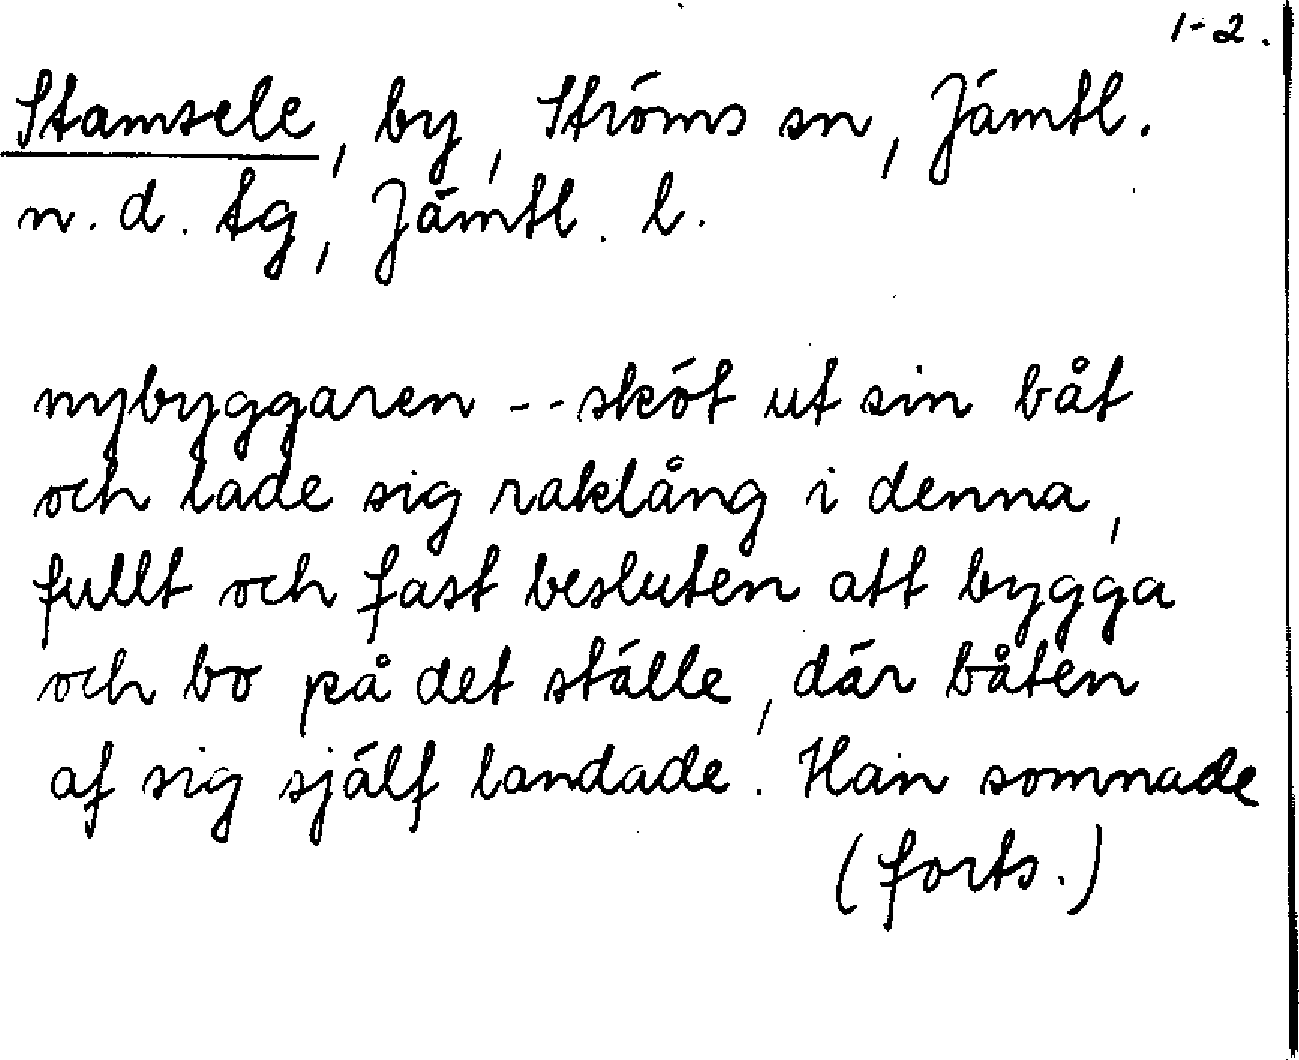 1-2.
Stamsele, by, Ströms sn, Jämtl.
n. d. tg, Jämtl. l.
nybyggaren -- sköt ut sin båt
och lade sig raklång i denna,
fullt och fast besluten att bygga
och bo på det ställe, där båten
af sig själf landade. Han somnade
(forts.)